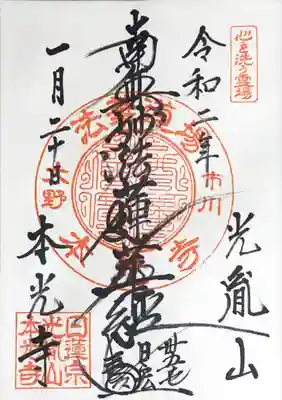 心を洗う霊場
令和二年
光胤山
南無妙法蓮華経
一月二十日
本光寺
市川
大野
日蓮宗
光胤山
本光寺